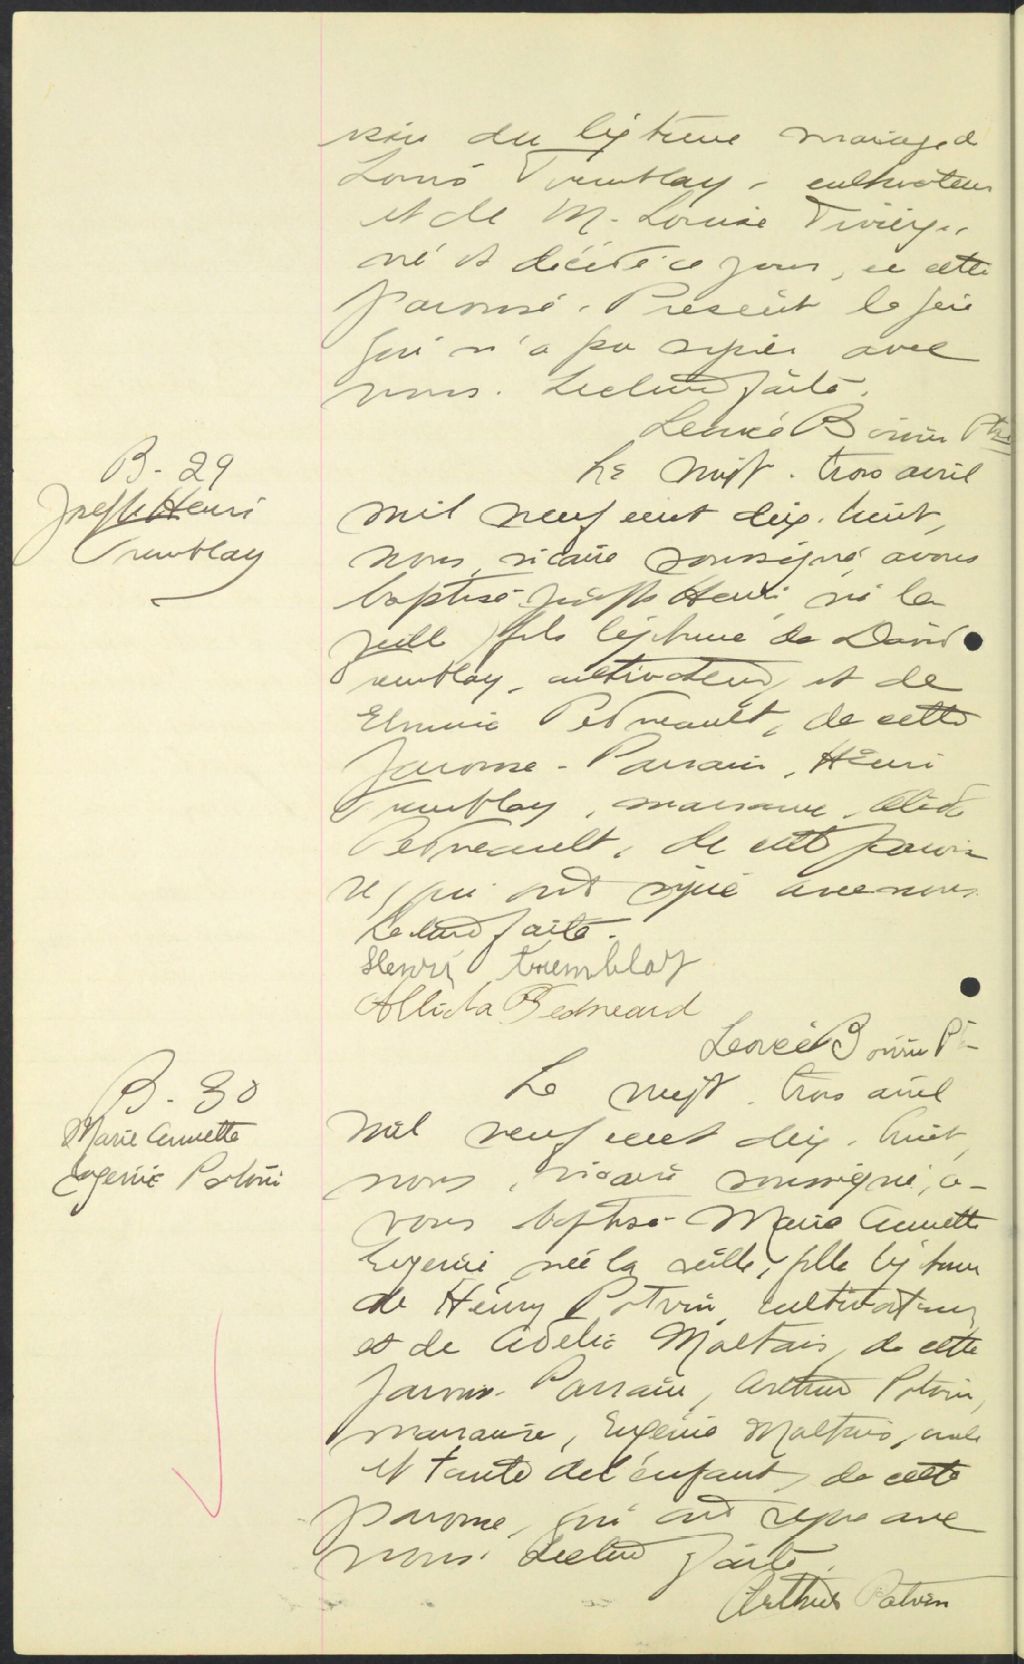 du légitime mariage de
Louis Tremblay, cultivateur
et de M. Louise
né et décédé ce jour, en cette
paroisse. Présent le père
qui n'a pu signer avec
nous. Lecture faite.
Ptre
B. 29
Joseph Henri
Tremblay
Le vingt-trois avril
mil neuf cent dix-huit,
nous, vicaire soussigné, avons
baptisé Joseph Henri, né la
veille, fils légitime de David
Tremblay, cultivateur, et de
de cette
paroisse. Parrain, Henri
Tremblay, marraine,
de cette parois
se, qui ont signé avec nous.
Lecture faite.
Henri tremblay
Allida
Ptre
B. 30
Marie Annette
Eugénie Potvin
Le vingt-trois avril
mil neuf cent dix-huit,
nous, vicaire soussigné, a-
vons baptisé Marie Annette
Eugénie, née la veille, fille légitime
de Henry Potvin, cultivateur,
et de Adélia Maltais, de cette
paroisse. Parrain, Arthur Potvin,
marraine, Eugénie Maltais, oncle
et tante de l'enfant, de cette
paroisse, qui ont signé avec
nous. Lecture faite.
Arthur Potvin